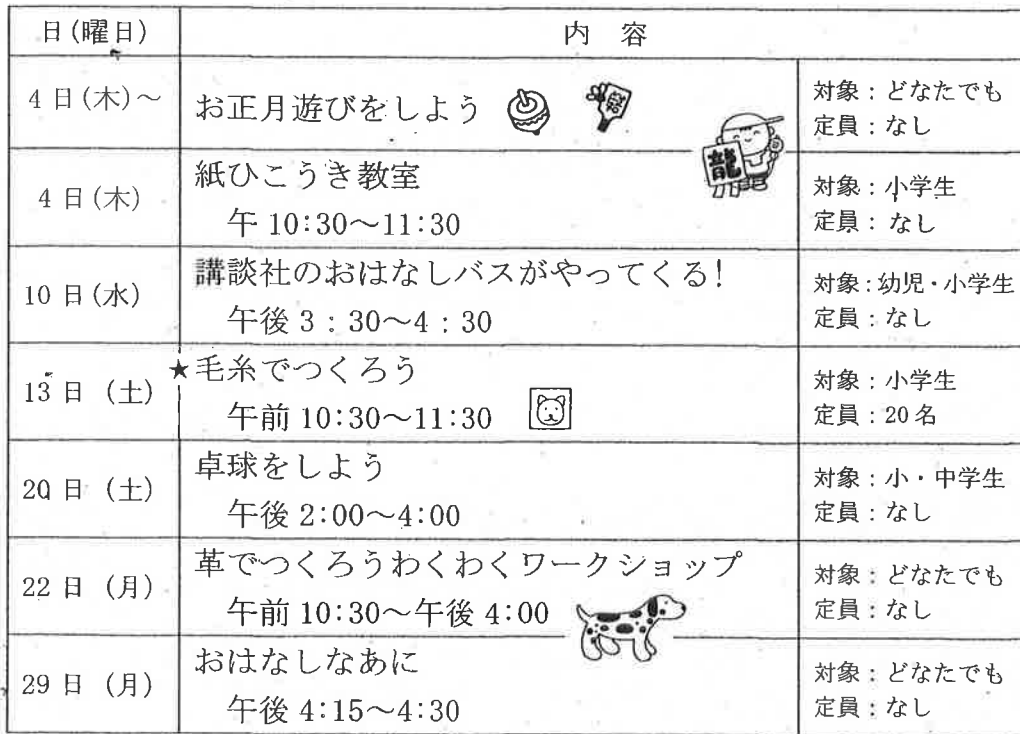 日(曜日)
内 容
4日(木)～
お正月遊びをしよう
対象：どなたでも
定員：なし
龍
4日(木)
紙ひこうき教室
午 10:30～11:30
対象：小学生
定員：なし
10日(水)
講談社のおはなしバスがやってくる!
午後 3：30～4：30
対象：幼児・小学生
定員：なし
13日 (土)
★毛糸でつくろう
午前 10:30～11:30
対象：小学生
定員：20名
20日 (土)
卓球をしよう
午後 2:00～4:00
対象：小・中学生
定員：なし
22日 (月)
革でつくろうわくわくワークショップ
午前 10:30～午後 4:00
対象：どなたでも
定員：なし
29日 (月)
おはなしなあに
午後 4:15～4:30
対象：どなたでも
定員：なし